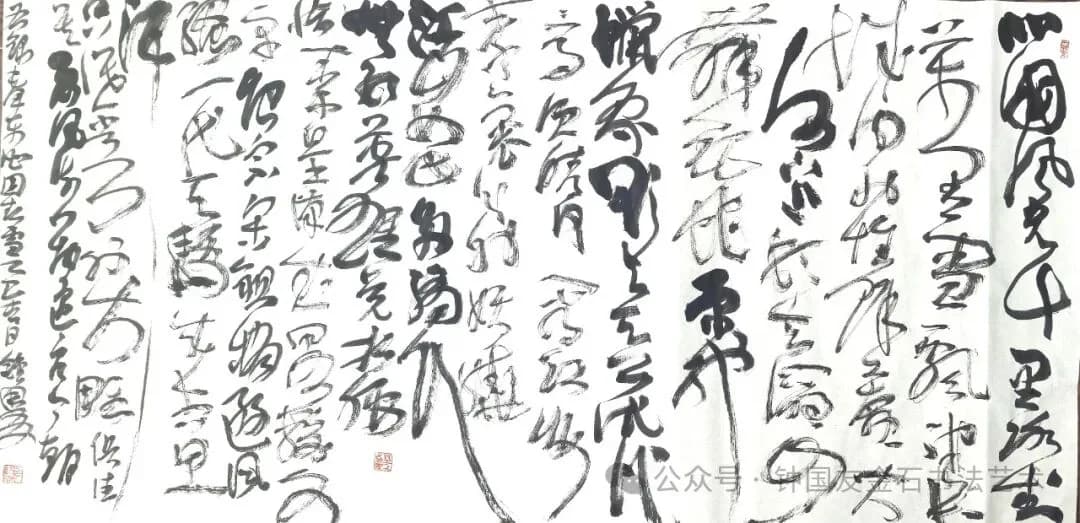 北国风光千里冰封
万里雪飘望长
城内外惟余莽莽大
河上下顿失滔滔山
舞银蛇原驰
蜡象欲与天公试比
高须晴日看红妆
素裹分外妖娆
江山如此多娇引
无数英雄竞折腰
惜秦皇汉武略输文
采唐宗宋祖稍逊风
骚一代天骄成吉思
汗
只识弯弓射大雕俱往
矣数风流人物还看今朝
毛泽东沁园春雪乙巳春日钟国友
公众号·钟国友金石书法艺术